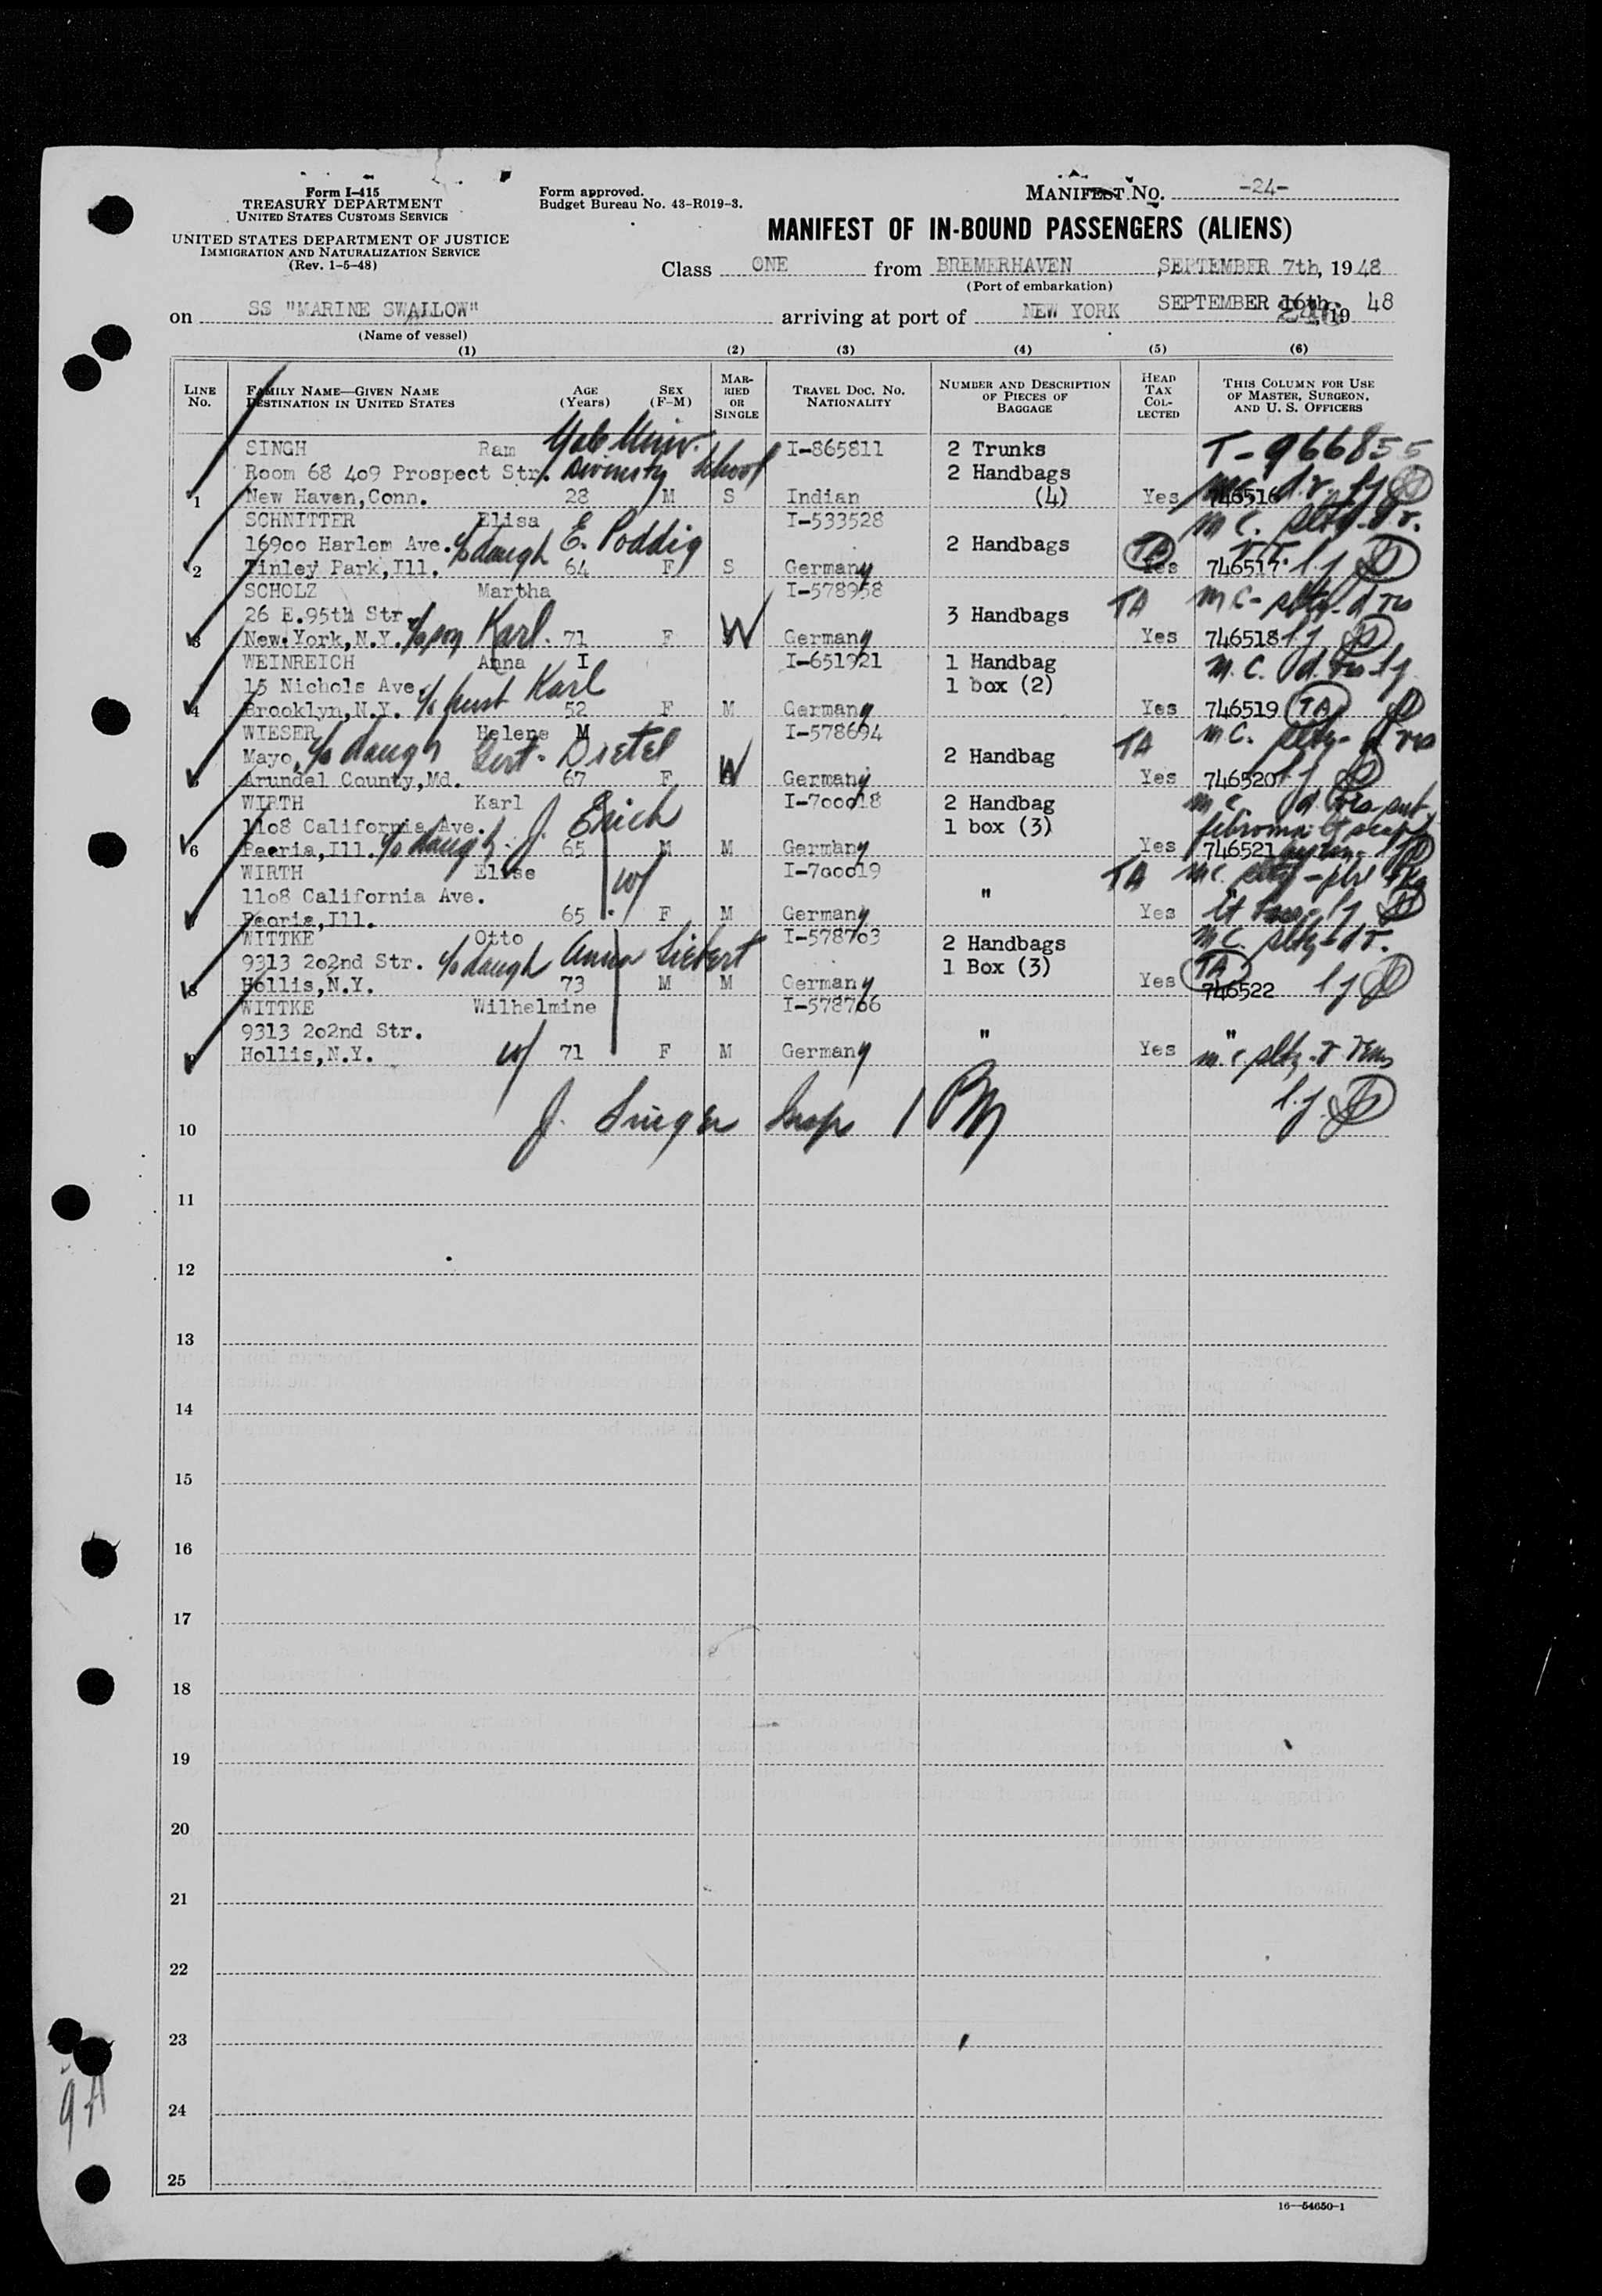 Form I-415
TREASURY DEPARTMENT
UNITED STATES CUSTOMS SERVICE
UNITED STATES DEPARTMENT OF JUSTICE
IMMIGRATION AND NATURALIZATION SERVICE
(Rev. 1-5-48)
Form approved.
Budget Bureau No. 43-R019-3.
MANIFEST NO. -24-
MANIFEST OF IN-BOUND PASSENGERS (ALIENS)
Class ONE from BREMERHAVEN SEPTEMBER 7th, 1948
(Port of embarkation)
on SS "MARINE SWALLOW" arriving at port of NEW YORK SEPTEMBER 16th, 19 48
(Name of vessel)
(1) (2) (3) (4) (5) (6)
LINE No. FAMILY NAME—GIVEN NAME DESTINATION IN UNITED STATES AGE (Years) SEX (F-M) MARRIED OR SINGLE TRAVEL DOC. NO. NATIONALITY NUMBER AND DESCRIPTION OF PIECES OF BAGGAGE HEAD TAX COLLECTED THIS COLUMN FOR USE OF MASTER, SURGEON, AND U. S. OFFICERS
SINGH Ram Yale Univ. I-865811 2 Trunks T-966855
Room 68 409 Prospect Str. Divinity School 2 Handbags
1 New Haven,Conn. 28 M S Indian (4) Yes 746516
SCHNITTER Elisa I-533528 m c.
16900 Harlem Ave. c/o daugh E. Poddig 2 Handbags TA
2 Tinley Park,Ill. 64 F S Germany Yes 746517
SCHOLZ Martha I-578958 TA m c-
26 E.95th Str. 3 Handbags
3 New York,N.Y. c/o son Karl. 71 F W Germany Yes 746518
WEINREICH Anna I I-651921 1 Handbag m. c.
15 Nichols Ave. 1 box (2)
4 Brooklyn,N.Y. c/o husb Karl 52 F M Germany Yes 746519 TA
WIESER Helene M I-578694 TA m c.
Mayo, c/o daugh Gert. Dietel 2 Handbag
5 Arundel County,Md. 67 F W Germany Yes 746520
WIRTH Karl I-700018 2 Handbag m c.
1108 California Ave. 1 box (3) fibroma
6 Peoria,Ill. c/o daugh. J. Erich 65 M M Germany Yes 746521
WIRTH Elise w/ I-700019 TA m c.
1108 California Ave. "
7 Peoria,Ill. 65 F M Germany Yes "
WITTKE Otto I-578703 2 Handbags m c.
9313 202nd Str. c/o daugh Anna Siebert 1 Box (3) TA
8 Hollis,N.Y. 73 M M Germany Yes 746522
WITTKE Wilhelmine I-578706
9313 202nd Str. " "
9 Hollis,N.Y. w/ 71 F M Germany Yes m. c.
10 J. Singer Insp
11
12
13
14
15
16
17
18
19
20
21
22
23
24
25
16—54650-1